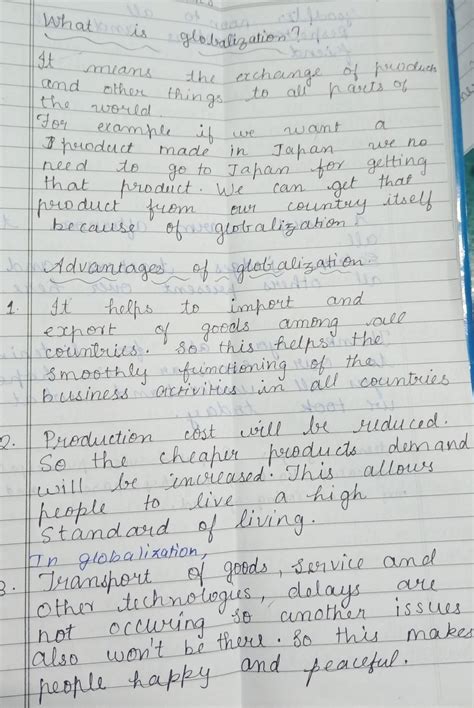 What is globalization?
It means the exchange of product
and other things to all parts of
the world.
For example if we want a
product made in Japan we no
need to go to Japan for getting
that product. We can get that
product from our country itself
because of globalization.
Advantages of globalization.
1. It helps to import and
export of goods among all
countries. So this helps the
smoothly functioning of the
business activities in all countries
2. Production cost will be reduced.
So the cheaper products demand
will be increased. This allows
people to live a high
standard of living.
In globalization,
3. Transport of goods, service and
other technologies, delays are
not occuring so another issues
also won't be there. So this makes
people happy and peaceful.